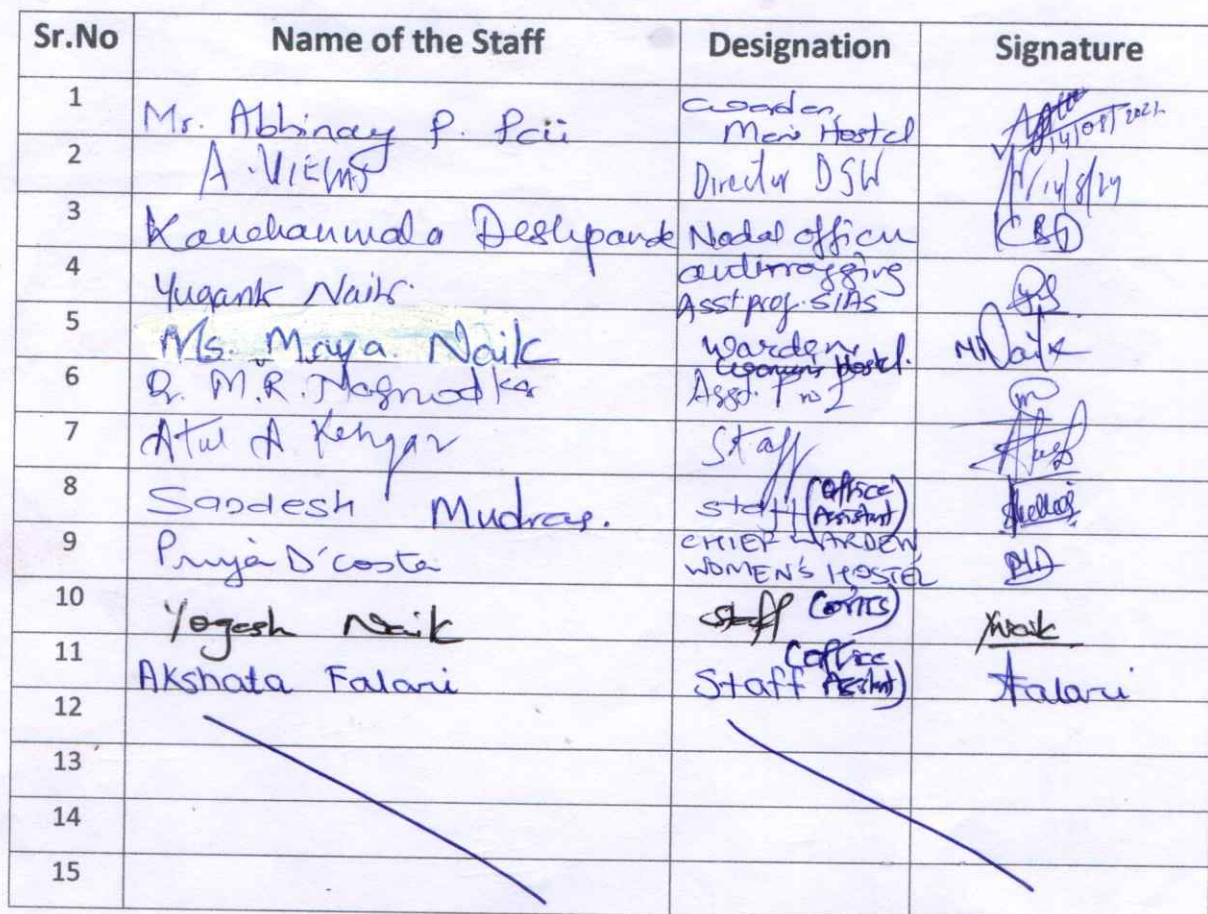 Sr.No Name of the Staff Designation Signature
1 Mr. Abhinay P. Pai Warden, Men's Hostel 14/08/2024
2 A. Director DSW 14/8/24
3 Kanchanmala Deshpande Nodal officer antiragging KBD
4 Yugank Naik. Asst. prof. SIAS
5 Ms. Maya Naik Warden, Women's Hostel. MNaik
6 Dr. M.R. Asst. Prof
7 Atul A Kengar Staff
8 Sandesh Mudras. Staff (Office Assistant)
9 Priya D'costa CHIEF WARDEN WOMEN'S HOSTEL
10 Yogesh Naik Staff YNaik
11 Akshata Falari Staff (Office Assistant) AFalari
12
13
14
15